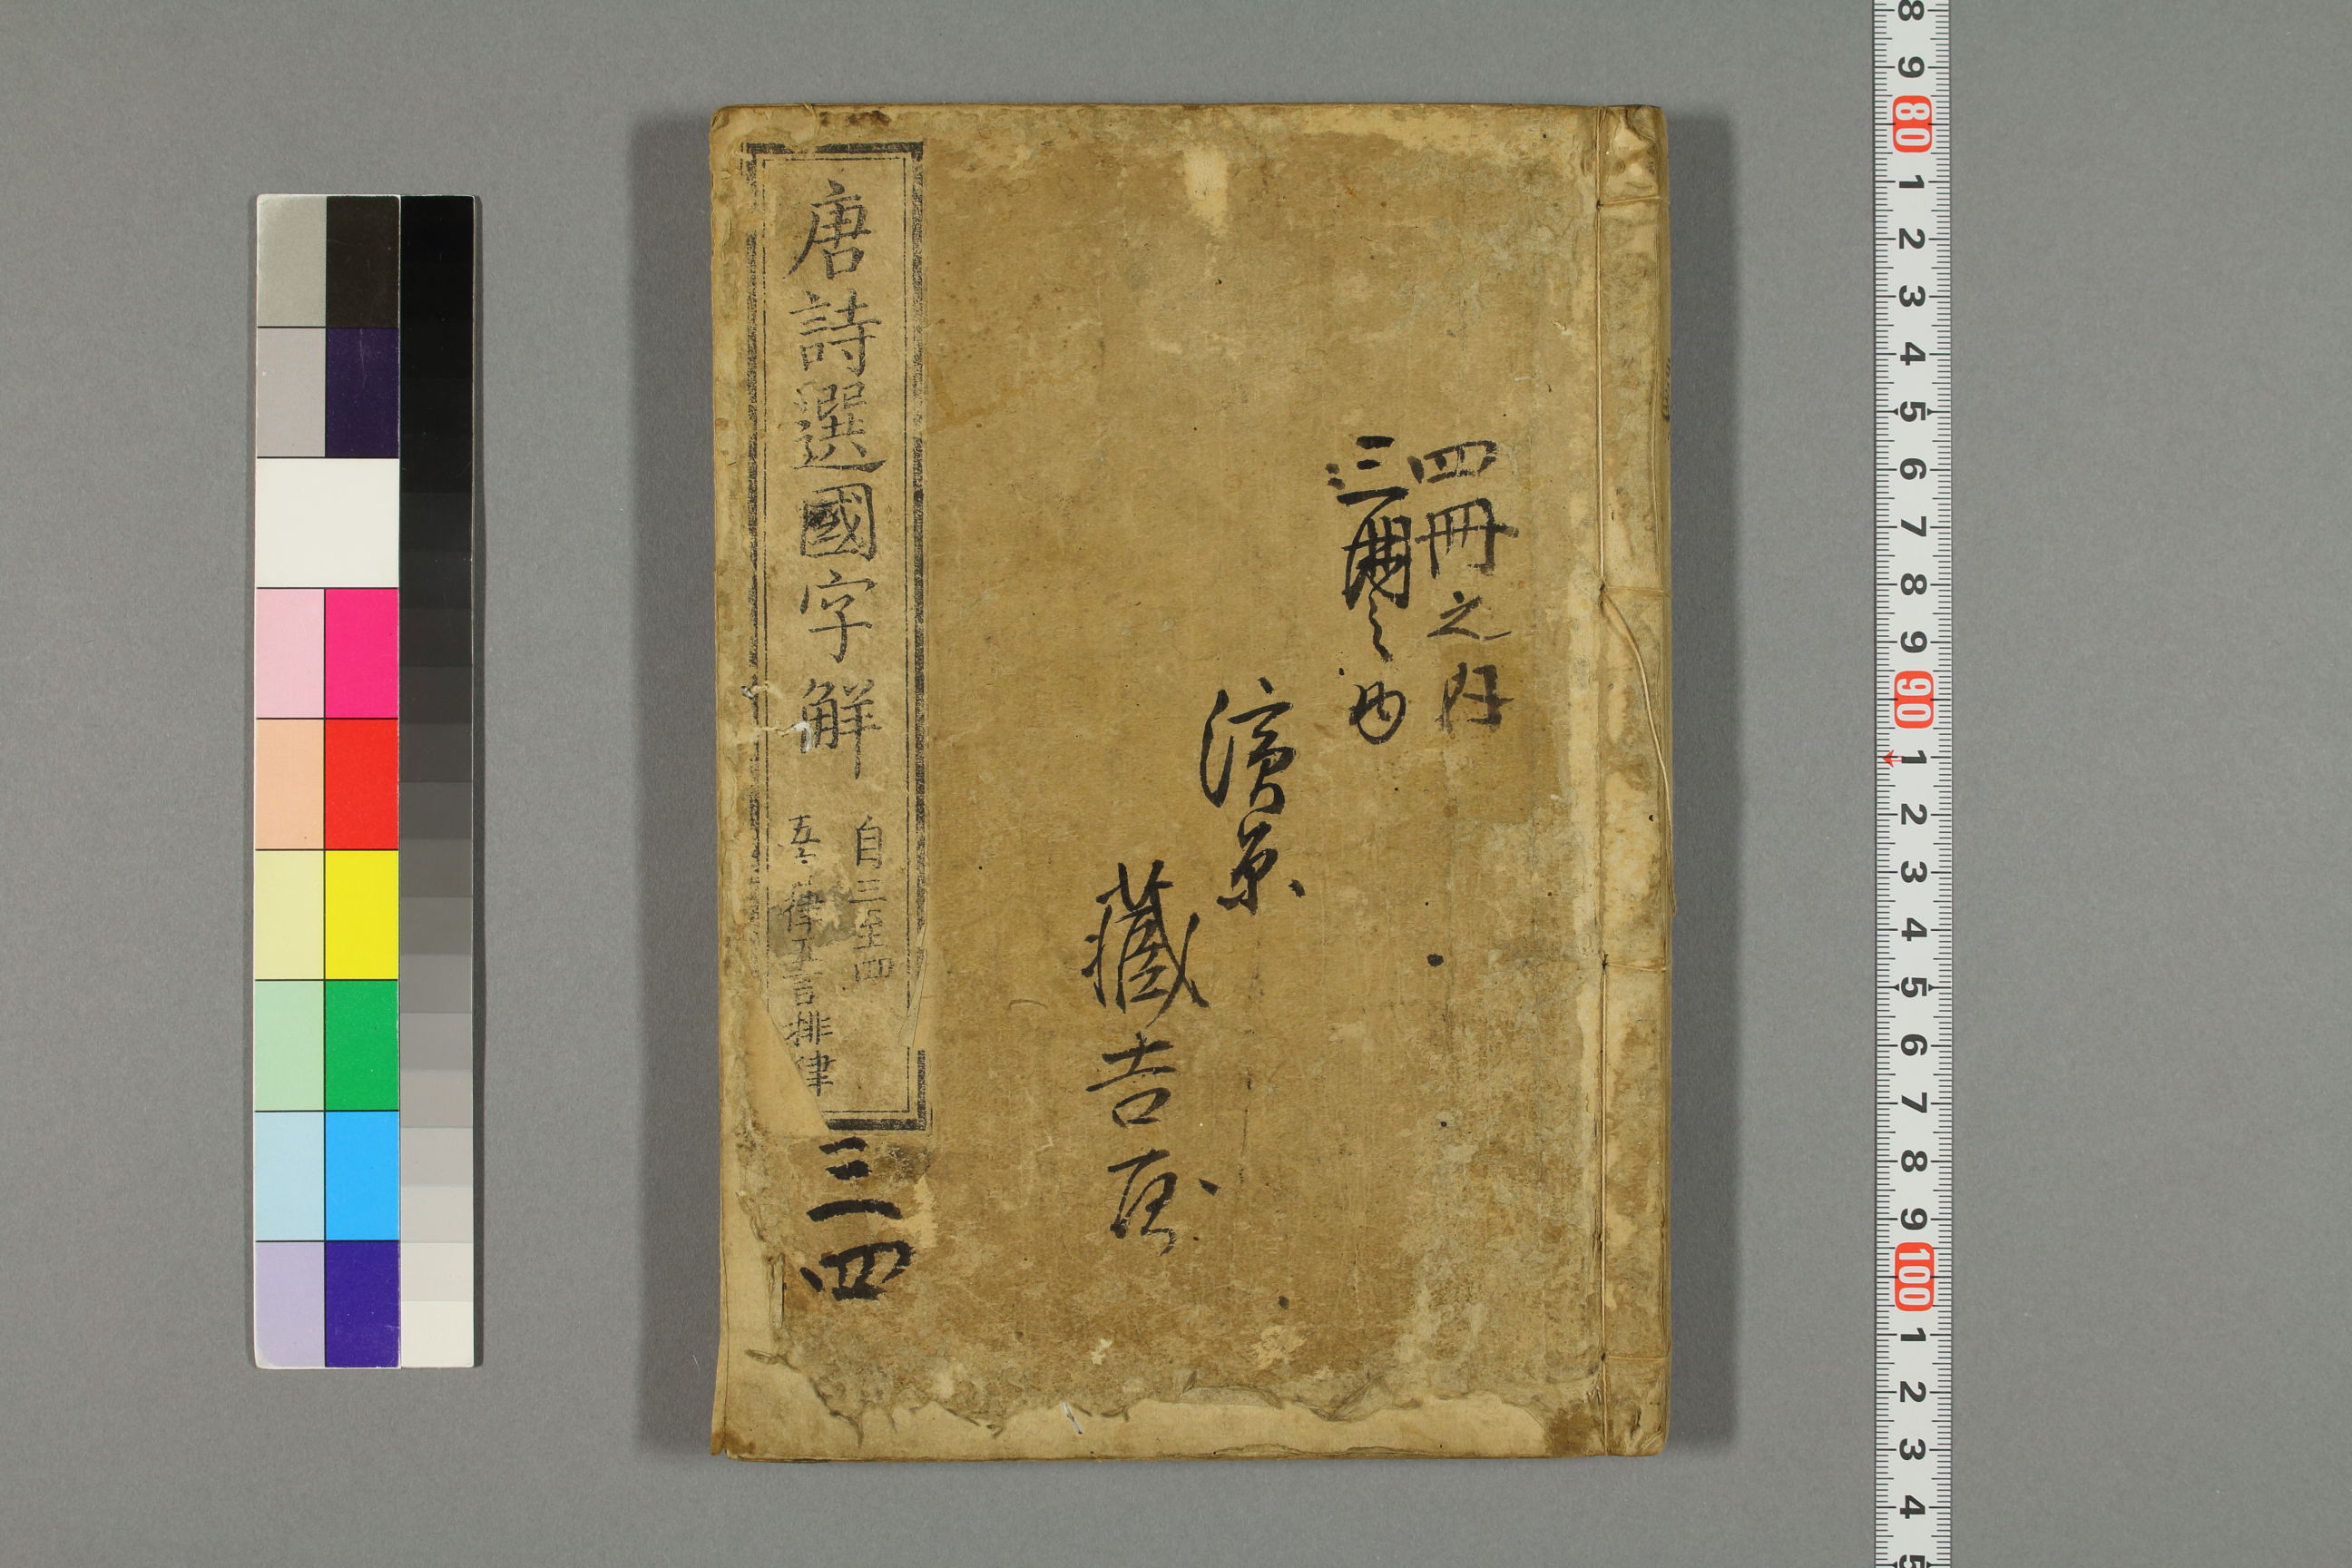 四冊之内
三冊之内
濱京
藏吉
唐詩選國字解
自三至四
五言律五言排律
三四
8 9 80 1 2 3 4 5 6 7 8 9 90 1 2 3 4 5 6 7 8 9 100 1 2 3 4 5